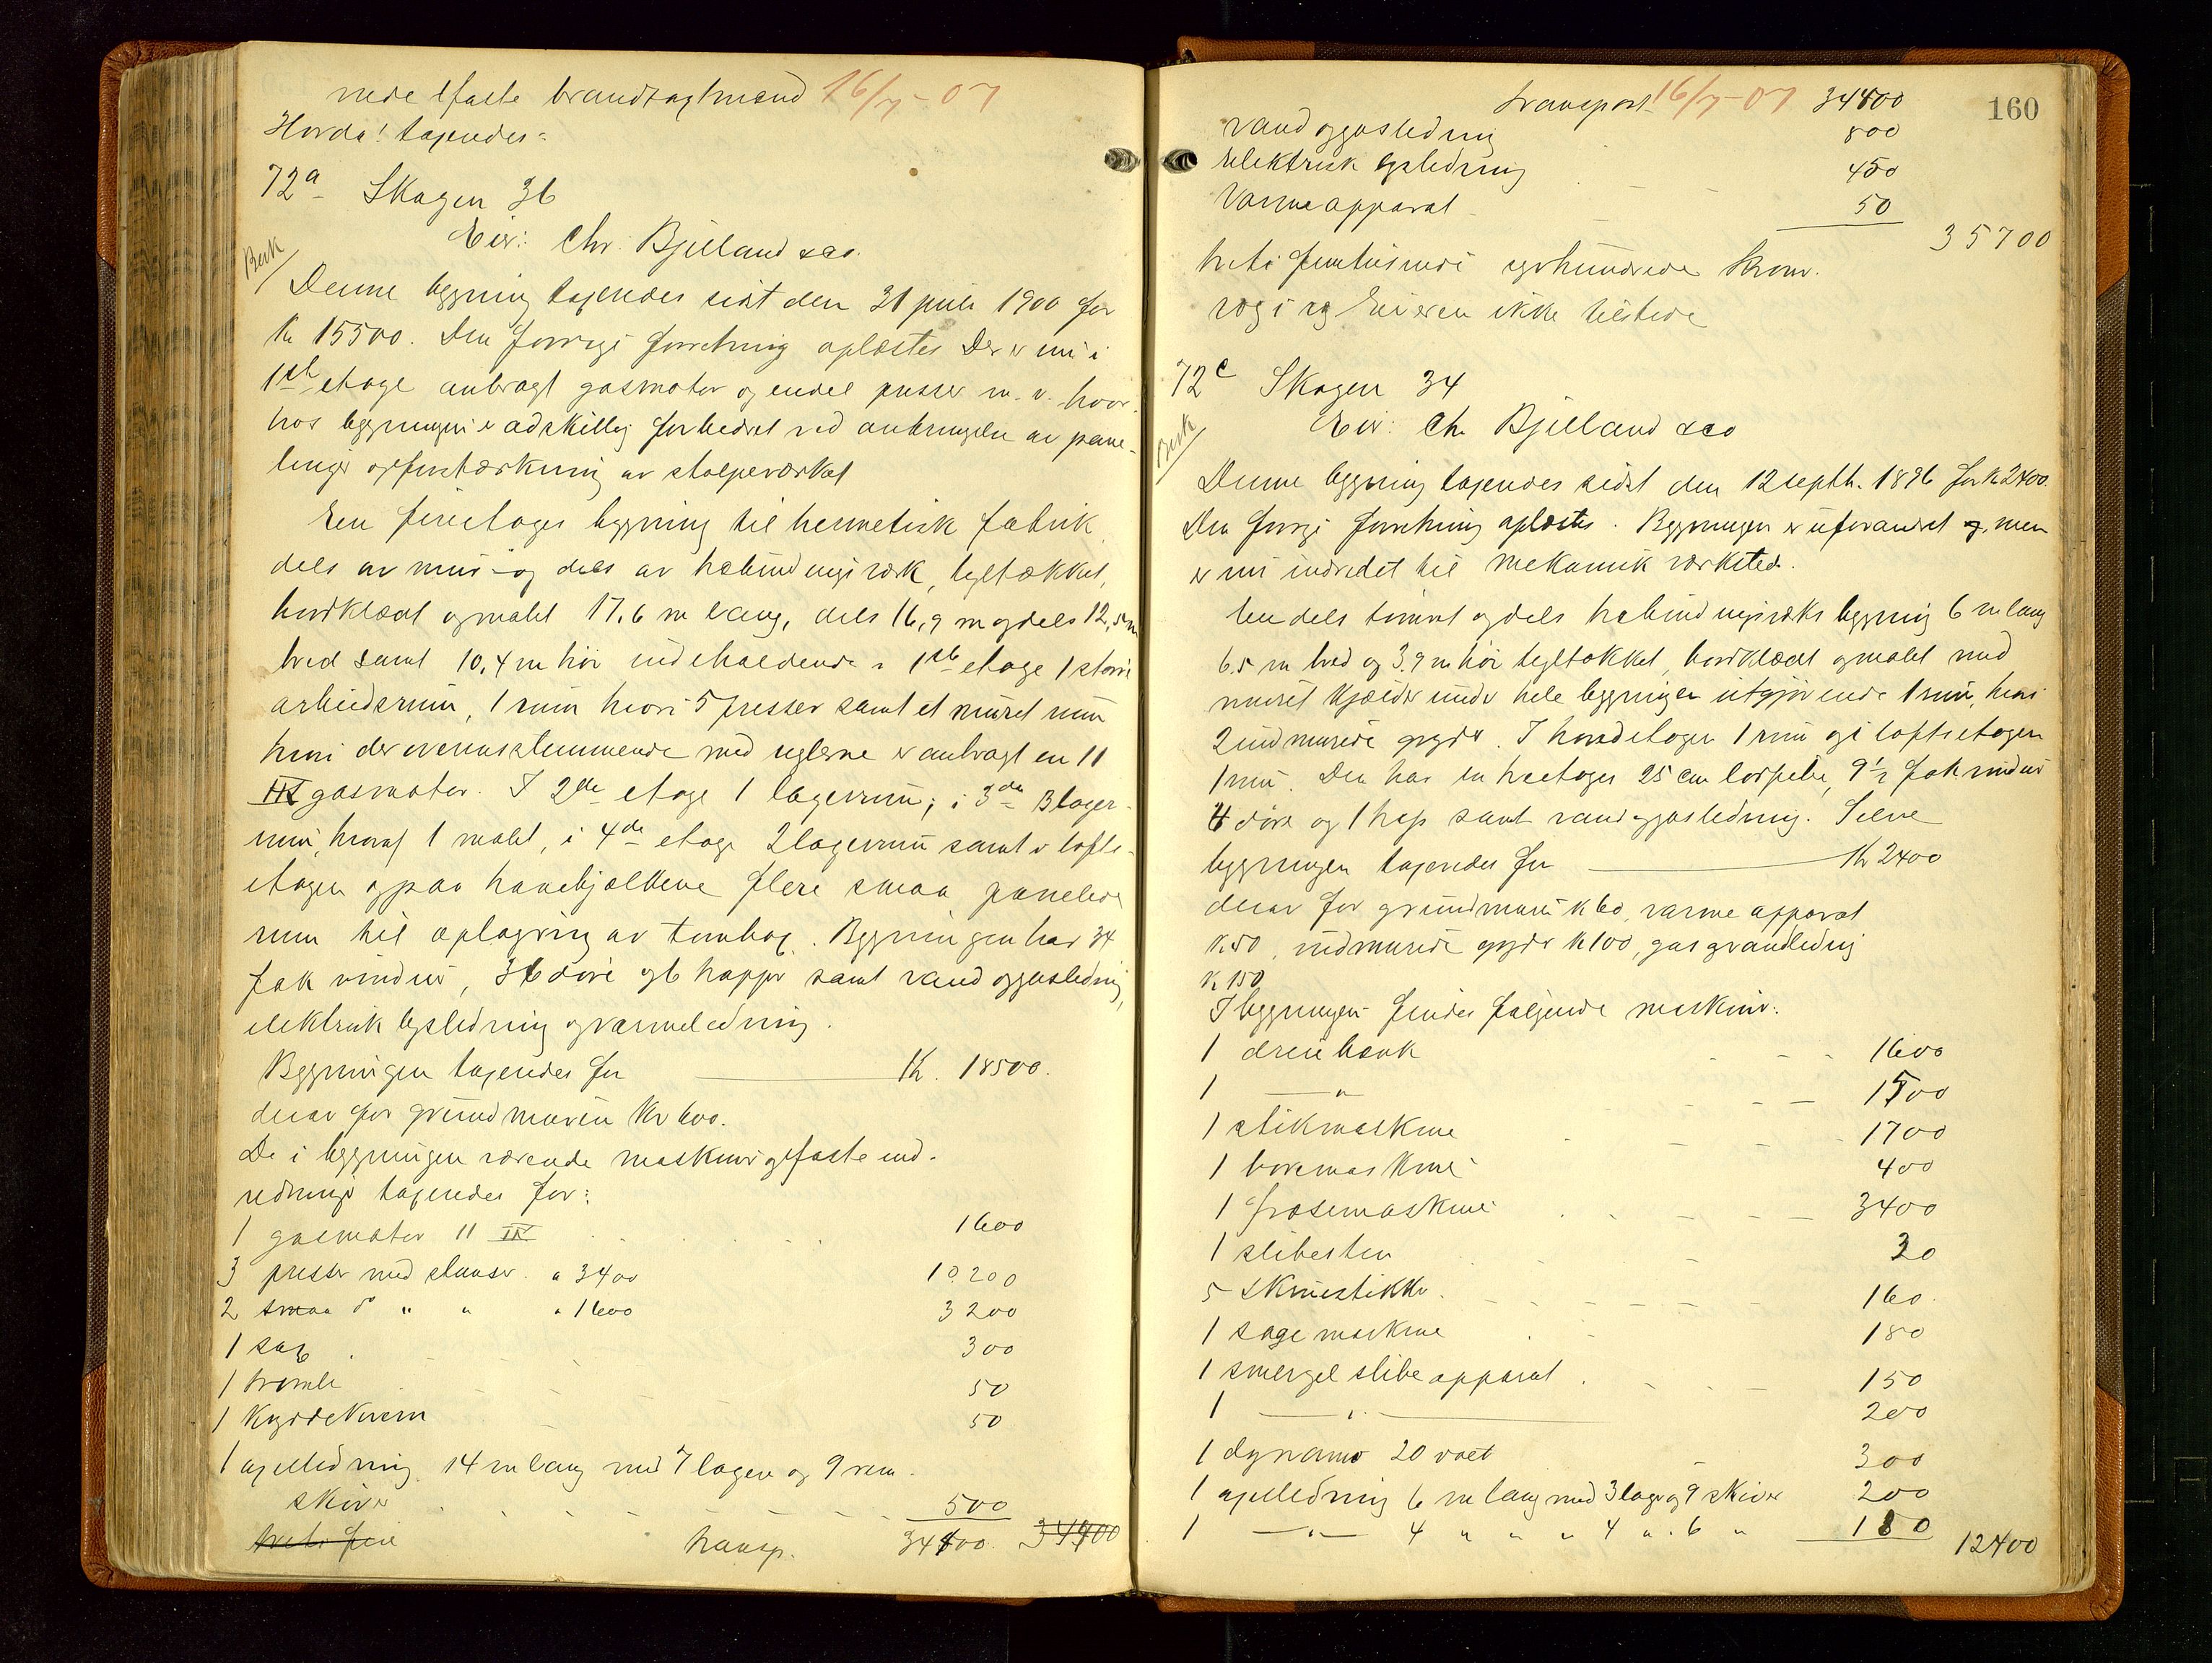 nede faste brandtagtmænd 16/7-07
Horda! taxeredes:
72a Skagen 36
Eier: Chr. Bjelland & co.
Besk
Denne bygning taxeredes sidst den 31 juli 1900 for
Kr 15500. Den forrige forretning oplæstes Der er nu i
1ste etage anbragt gasmotor og endel presser m. v. hvor-
hos bygningen er adskillig forbedret ved anbringelse av pane-
linger og forstærkning av stolpeværket
En fireetages bygning til hermetisk fabrik
dels av mur- og dels av utbindingsværk, tegltækket,
bordklædt og malet 17,6 m lang, dels 16,9 m og dels 12,5 m
bred samt 10,4 m høi indeholdende i 1ste etage 1 større
arbeidsrum, 1 rum hvori 5 presser samt et muret rum
hvori der overensstemmende med reglerne er anbragt en 11
HK gasmotor. I 2den etage 1 lagerrum; i 3die 3 lager-
rum, hvoraf 1 malet, i 4de etage 2 lagerrum samt i lofts-
etagen og paa hanebjelkene flere smaa panelede
rum til oplagring av tomhog. Bygningen har 34
fak vinduer, 36 døre og 6 trapper samt vand og gasledning,
elektrisk lysledning og varmeledning.
Bygningen taxeredes for Kr. 18500.
derav for grundmuren Kr 600.
De i bygningen værende maskiner og faste ind-
redninger taxeredes for:
1 gasmotor 11 HK 1600
3 presser med stanser a 3400 10.200
2 smaa do " " a 1600 3200
1 sag 300
1 tromle 50
1 Krydekvern 50
1 axelledning 14 m lang med 7 lagere og 9 rem-
skiver 500
transp. 34400 34400
160
Transport 16/7-07 34400
vand og gasledning 800
Elektrisk lysledning 450
Varmeapparat 50
35700
tretifemtusinde syvhundrede kroner.
Eieren ikke tilstede
72c Skagen 34
Eier: Chr Bjelland & co
Besk
Denne bygning taxeredes sidst den 12 septb. 1896 for Kr 2400.
Den forrige forretning oplæstes. Bygningen er uforandret men
er nu indredet til mekanisk værksted.
En dels tømret og dels utbindingsværks bygning 6 m lang
6.5 m bred og 3.9 m høi tegltækket, bordklædt og malet med
muret kjælder under hele bygningen utgjørende 1 rum, hvori
2 indmurede gryder. I hovedetagen 1 rum og i loftsetagen
1 rum. Den har en treetages 25 cm løspibe, 9 1/2 fak vinduer
4 døre og 1 trap samt vand og gasledning. Selve
bygningen taxeredes for Kr 2400
derav for grundmuren K 60, varme apparat
K 50, indmurede gryder K 100, gas og vandledning
K 150
I bygningen findes følgende maskiner:
1 dreiebænk 1600
1 —"— 1500
1 stikmaskine 1700
1 boremaskine 400
1 fræsemaskine 3400
1 slibesten 20
5 skruestikker 160
1 sagemaskine 180
1 smergel slibeapparat 150
1 —"— 200
1 dynamo 20 volt 300
1 axelledning 6 m lang med 3 lager og 9 skiver 200
1 —"— 4 " " " 4 " " 6 " 180
12400